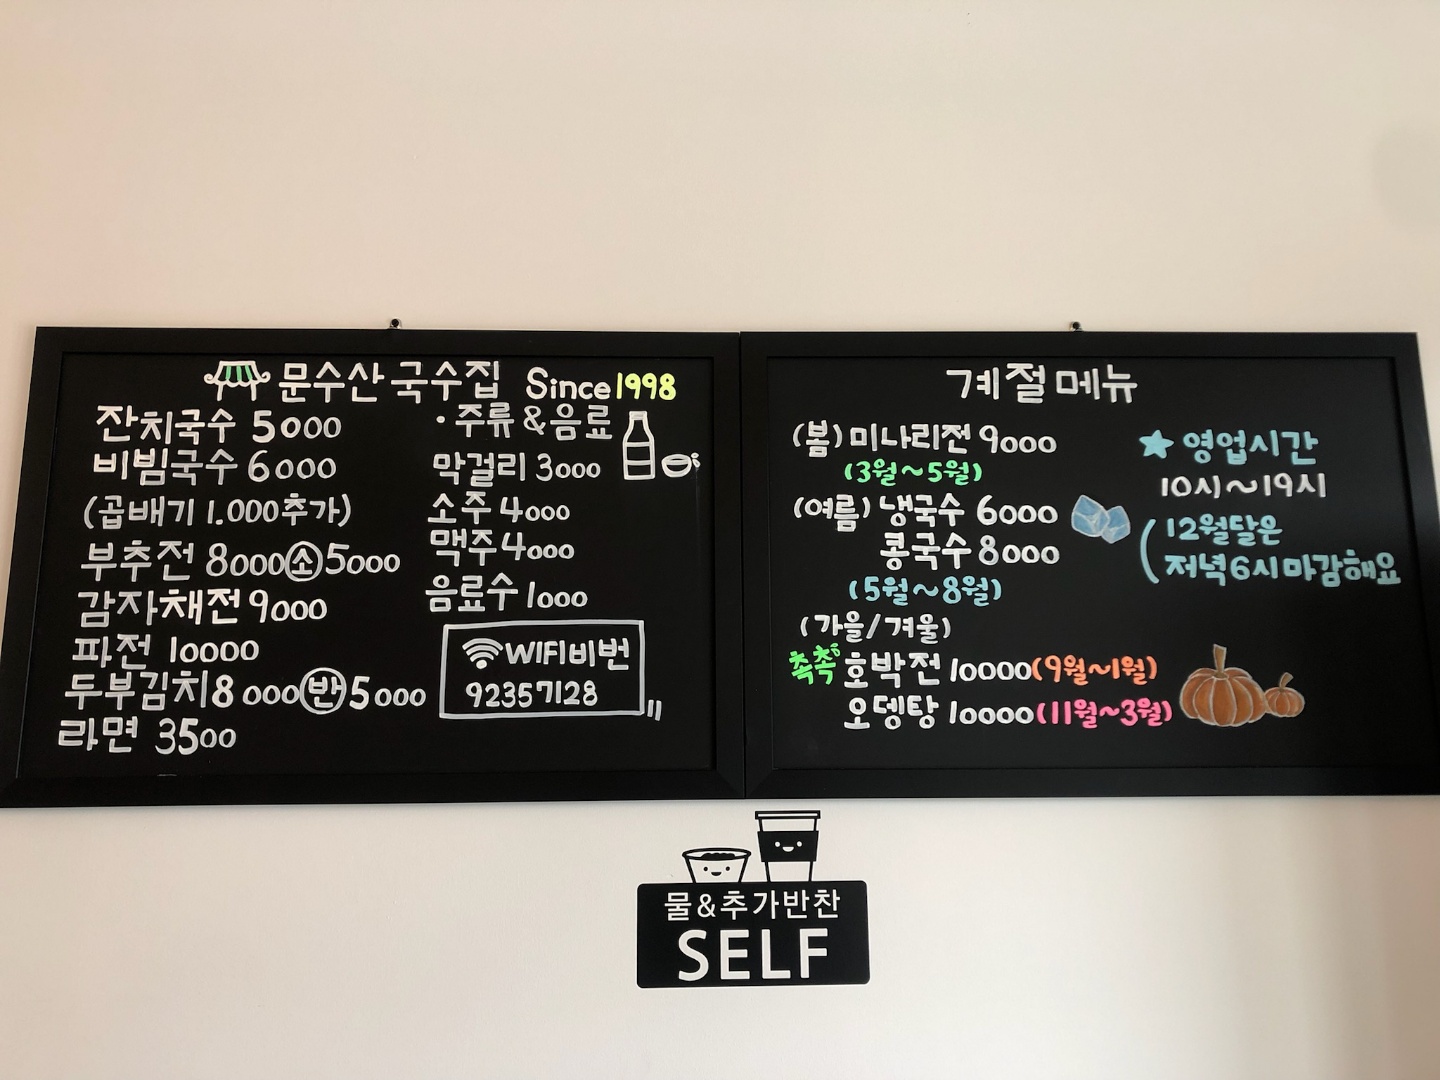 문수산 국수집 Since 1998
잔치국수 5000
비빔국수 6000
(곱배기 1.000추가)
부추전 8000 소 5000
감자채전 9000
파전 10000
두부김치 8000 반 5000
라면 3500
·주류&음료
막걸리 3000
소주 4000
맥주 4000
음료수 1000
WIFI비번
92357128
계절메뉴
(봄) 미나리전 9000
(3월~5월)
(여름) 냉국수 6000
콩국수 8000
(5월~8월)
(가을/겨울)
촉촉 호박전 10000 (9월~1월)
오뎅탕 10000 (11월~3월)
★ 영업시간
10시~19시
(12월달은
저녁6시마감해요
물&추가반찬
SELF